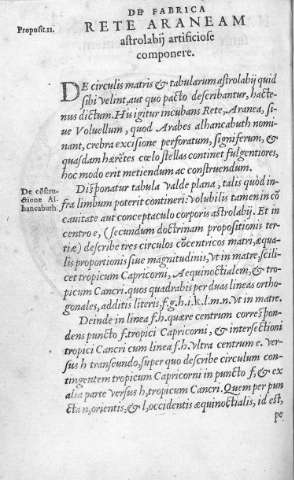 DE FABRICA
Proposit.11.
RETE ARANEAM
astrolabij artificiose
componere.
DE circulis matris & tabularum astrolabij quid
sibi velint, aut quo pacto describantur, hacte-
nus dictum. Hu igitur incubans Rete, Aranea, si-
ue Voluellum, quod Arabes alhancabuth nomi-
nant, crebra excisione perforatum, signiferum, &
quasdam hærētes cœlo stellas continet fulgentiores,
hoc modo erit metiendum ac construendum.
De cōstru-
ctione Al-
hancabuth.
Disponatur tabula valde plana, talis quòd in-
fra limbum poterit contineri: Volubilis tamen in cō
cauitate aut conceptaculo corporis astrolabij. Et in
centro e, (secundum doctrinam propositionis ter-
tiæ) describe tres circulos cōcentricos matri, æqua-
lis proportionis siue magnitudinis, vt in matre, scili-
cet tropicum Capricorni, Aequinoctialem, & tro-
picum Cancri: quos quadrabis per duas lineas ortho-
gonales, additis literis, f. g. h. i. k. l. m. n. vt in matre.
Deinde in linea f. h. quære centrum correspon-
dens puncto f. tropici Capricorni, & intersectioni
tropici Cancri cum linea f. h. vltra centrum e. ver-
sus h transeundo, super quo describe circulum con-
tingentem tropicum Capricorni in puncto f, & ex
alia parte versus h, tropicum Cancri. Quem per pun
cta n, orientis, & l, occidentis æquinoctialis, id est,
pe